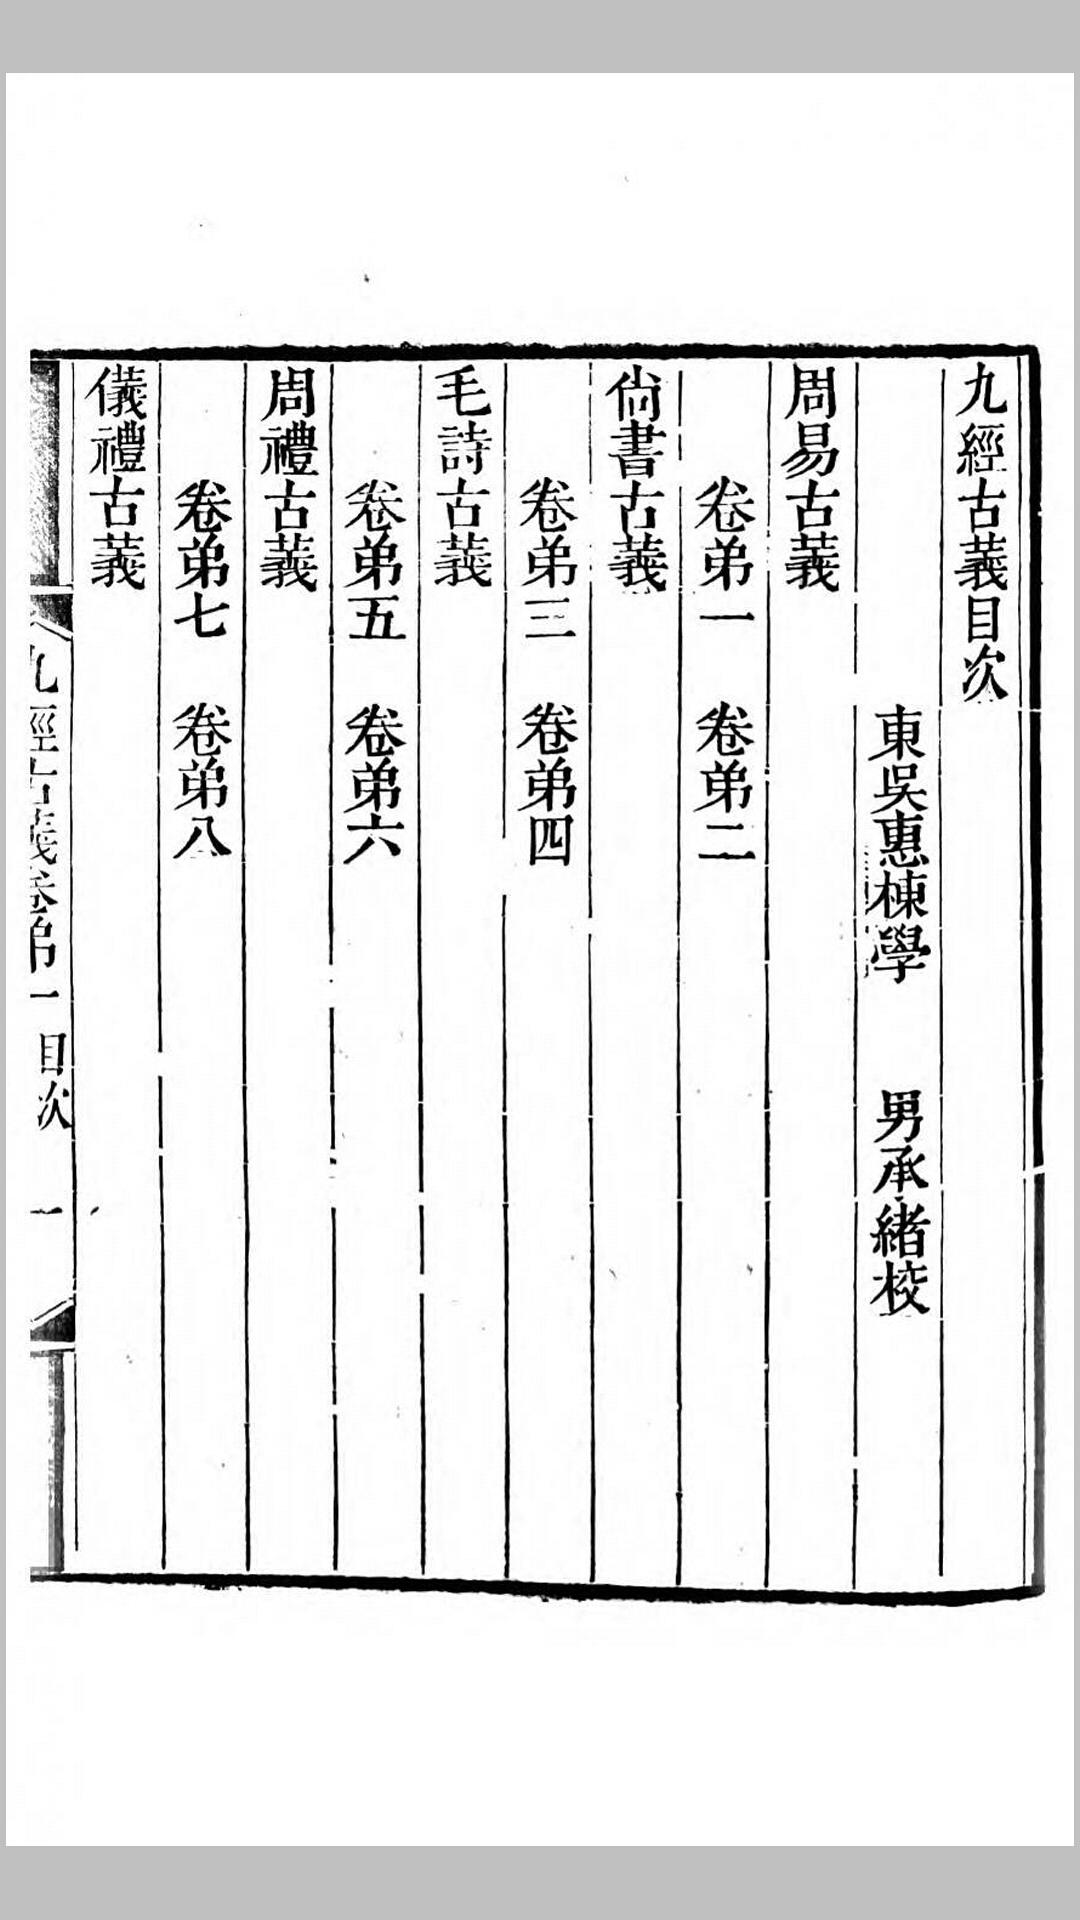 九經古義目次
東吳惠棟學　男承緒校
周易古義
卷弟一　卷弟二
尙書古義
卷弟三　卷弟四
毛詩古義
卷弟五　卷弟六
周禮古義
卷弟七　卷弟八
儀禮古義
九經古義卷弟一　目次　一